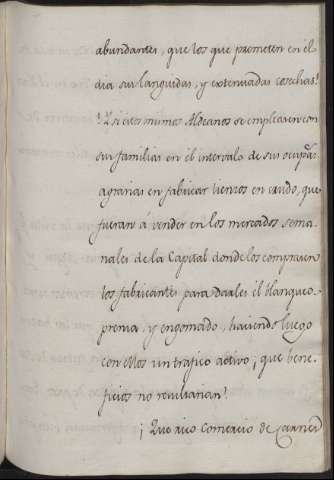 abundantes, que los que prometen en el
dia sus languidas, y extenuadas cosechas!
¡Y si estos mismos Aldeanos se empleasen con
sus familias en el intervalo de sus ocupas.
agrarias en fabricar lienzos en crudo, que
fueran á vender en los mercados sema-
nales de la Capital donde los comprasen
los fabricantes para darles el blanqueo
prensa, y engomado, haciendo luego
con ellos un trafico activo, que bene-
ficios no resultarian!
¡Que rico Comercio de